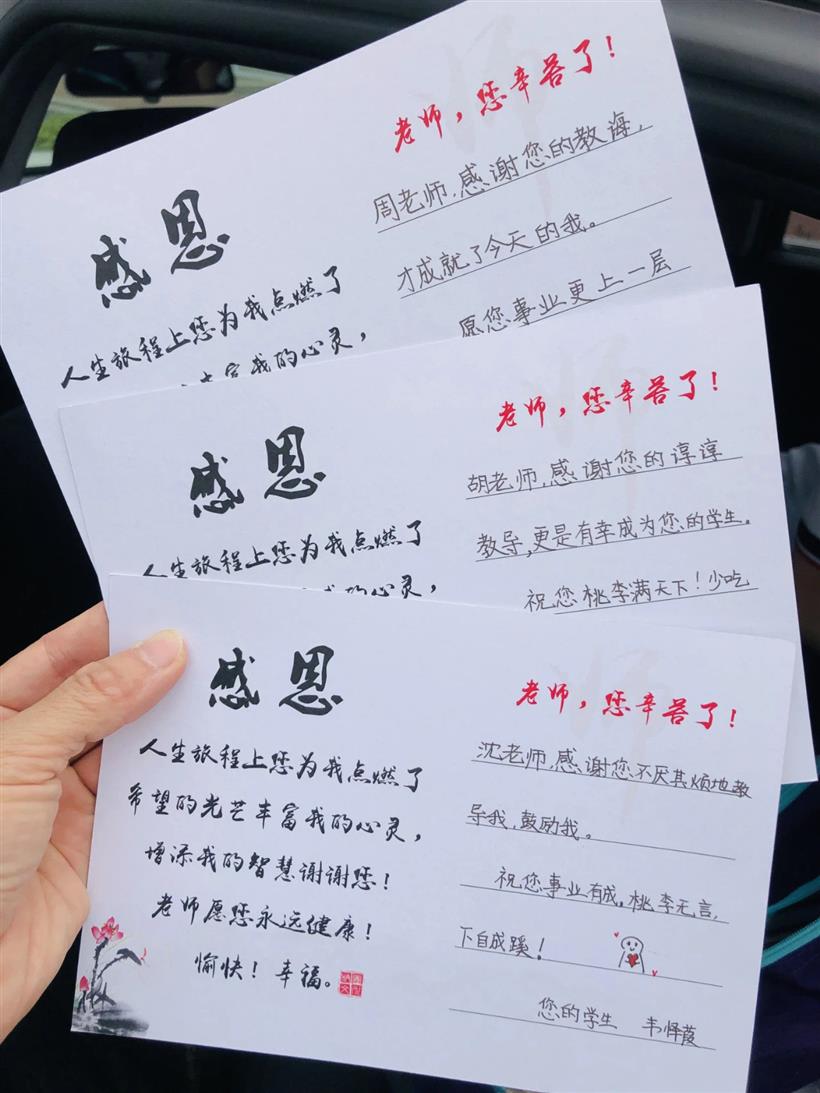 老师，您辛苦了！
周老师，感谢您的教诲，
才成就了今天的我。
愿您事业更上一层
感恩
人生旅程上您为我点燃了
富我的心灵，
老师，您辛苦了！
胡老师，感谢您的谆谆
教导，更是有幸成为您的学生。
祝您桃李满天下！少吃
感恩
人生旅程上您为我点燃了
我的心灵，
感恩
人生旅程上您为我点燃了
希望的光芒丰富我的心灵，
增添我的智慧谢谢您！
老师愿您永远健康！
愉快！幸福。
老师，您辛苦了！
沈老师，感谢您不厌其烦地教
导我，鼓励我。
祝您事业有成，桃李无言，
下自成蹊！
您的学生 韦怿葭
师